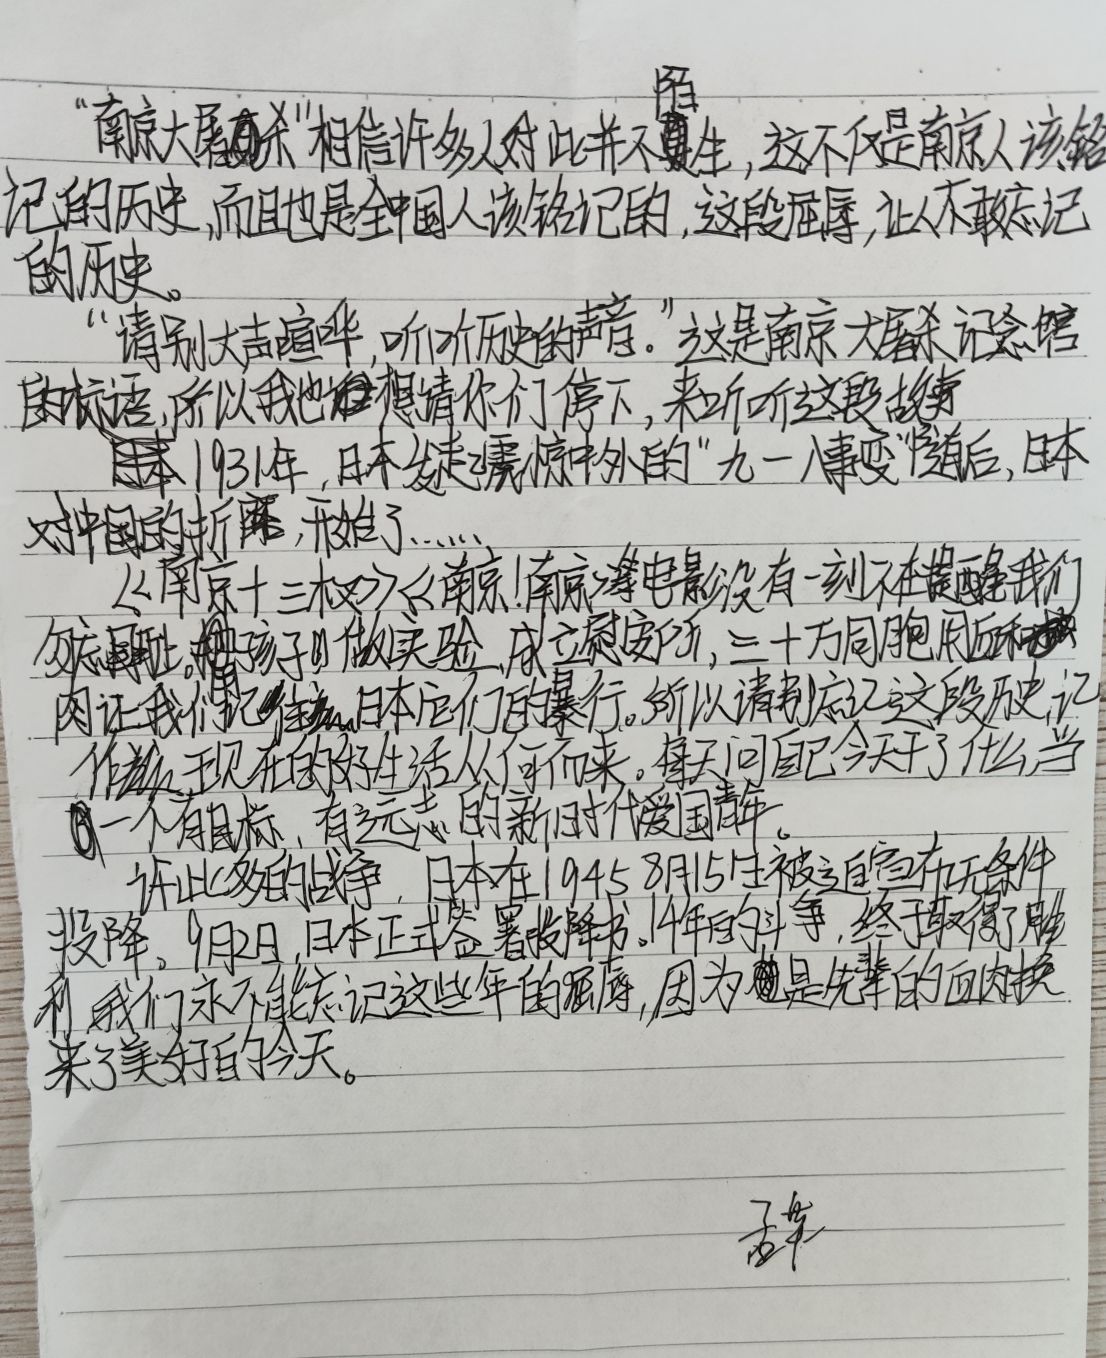 陌
“南京大屠杀”相信许多人对此并不生，这不仅是南京人该铭
记的历史，而且也是全中国人该铭记的，这段屈辱，让人不敢忘记
的历史。
“请别大声喧哗，听听历史的声音。”这是南京大屠杀记念馆
的标语，所以我也想请你们停下，来听听这段故事
1931年，日本发起了震惊中外的“九一八事变”随后，日本
对中国的折磨，开始了……
《南京十三钗》《南京！南京》等电影没有一刻不在提醒我们
勿忘国耻。孩子做实验，成立慰安所，三十万同胞用血和
肉让我们记住日本它们的暴行。所以请别忘记这段历史，记
住现在的好生活从何而来。每天问自己今天干了什么，当
一个有目标，有远志的新时代爱国青年。
许此多的战争，日本在1945 8月15日被迫宣布无条件
投降。9月2日，日本正式签署投降书。14年的斗争，终于取得了胜
利，我们永不能忘记这些年的屈辱，因为是先辈的血肉换
来了美好的今天。